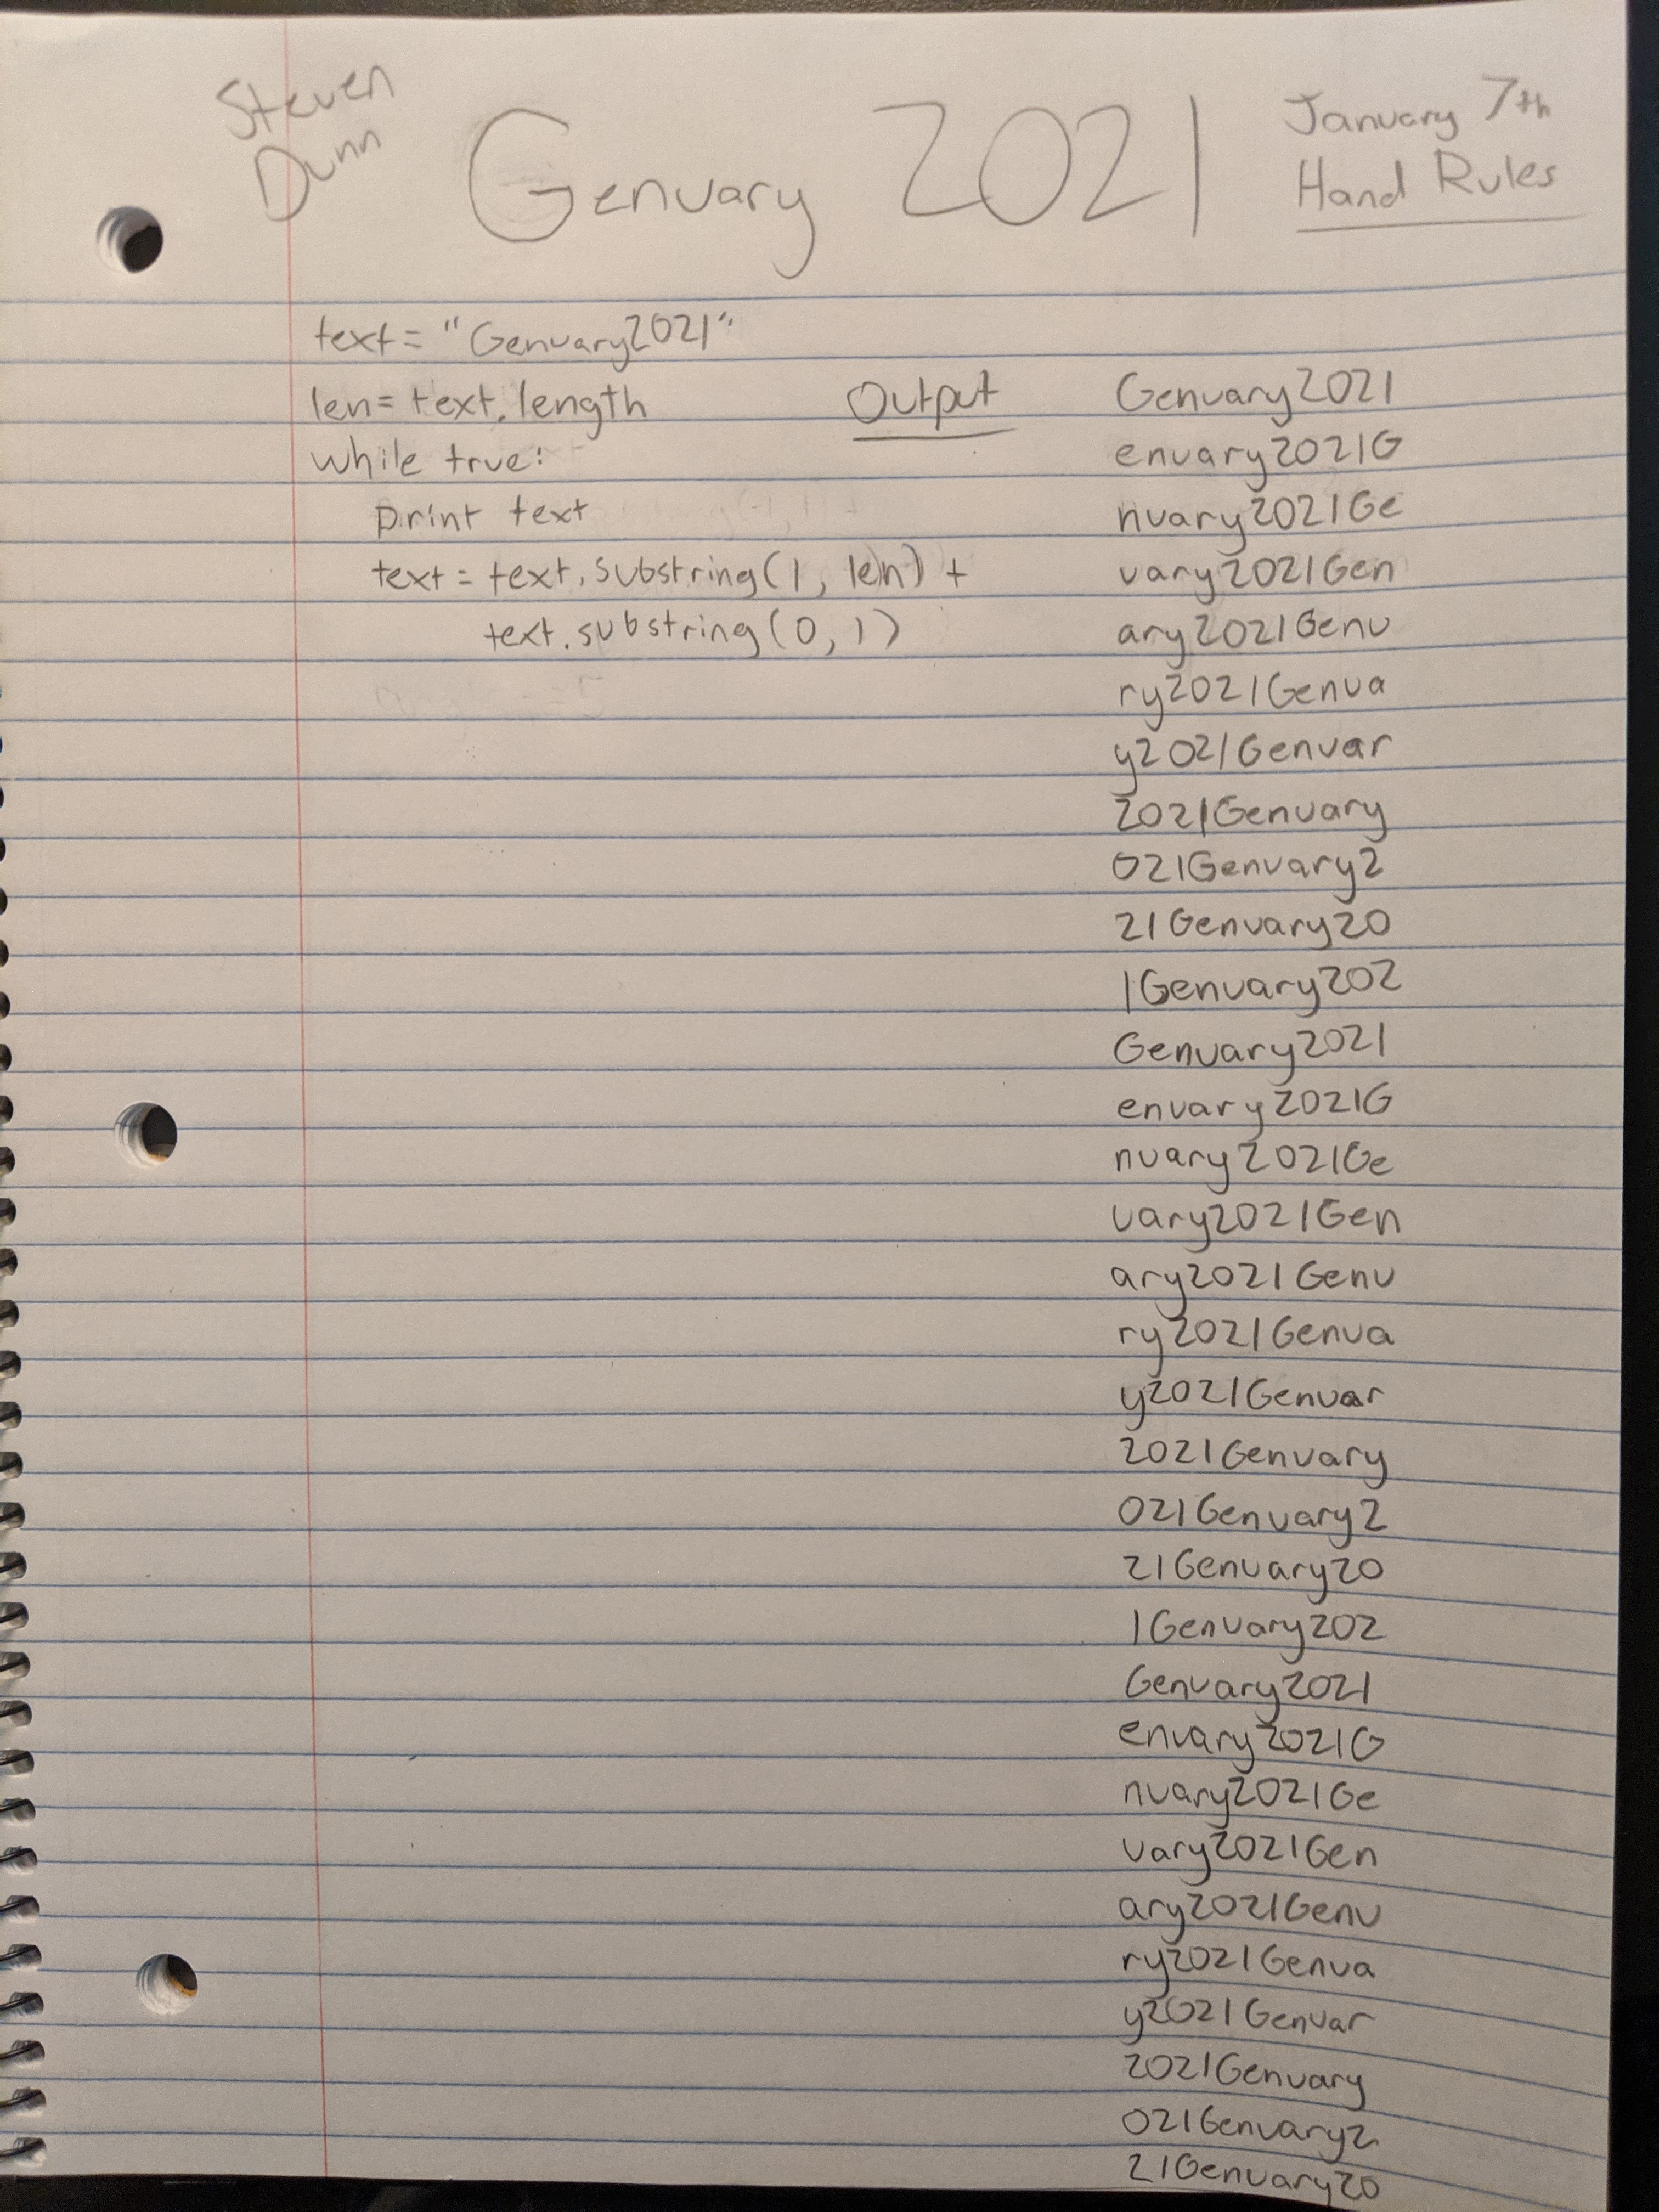 Steven
Dunn
Genuary 2021
January 7th
Hand Rules
text = "Genuary2021"
len = text.length
while true:
print text
text = text.substring(1, len) +
text.substring(0, 1)
Output
Genuary2021
enuary2021G
nuary2021Ge
uary2021Gen
ary2021Genu
ry2021Genua
y2021Genuar
2021Genuary
021Genuary2
21Genuary20
1Genuary202
Genuary2021
enuary2021G
nuary2021Ge
uary2021Gen
ary2021Genu
ry2021Genua
y2021Genuar
2021Genuary
021Genuary2
21Genuary20
1Genuary202
Genuary2021
enuary2021G
nuary2021Ge
uary2021Gen
ary2021Genu
ry2021Genua
y2021Genuar
2021Genuary
021Genuary2
21Genuary20